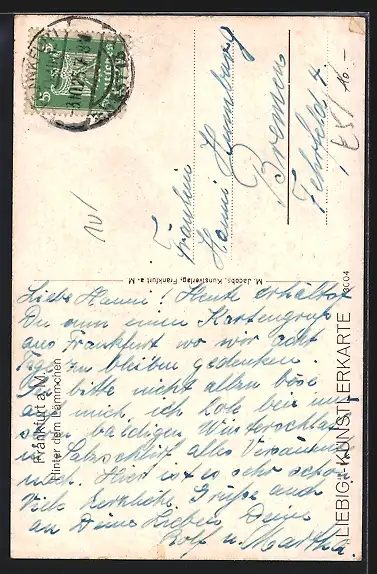 Frankfurt a. M.
Hinter dem Lämmchen
Liebe Hanni! Heute erhältst
Du nun einen Kartengruß
aus Frankfurt wo wir acht
Tage zu bleiben gedenken.
Sei bitte nicht allzu böse
auf mich, ich hole bei
baldigen Winterschlaf
in Salzschlirf alles Versäumte
nach. Hier ist es sehr schön.
Viele herzliche Grüße auch
an Deine Lieben Deine
Rolf u. Martha.
M. Jacobs, Kunstverlag, Frankfurt a. M.
LIEBIG-KÜNSTLERKARTE
Fräulein
Hanni Hamburg
Bremen
Fehrfeld 4
10/
16.-
5
5